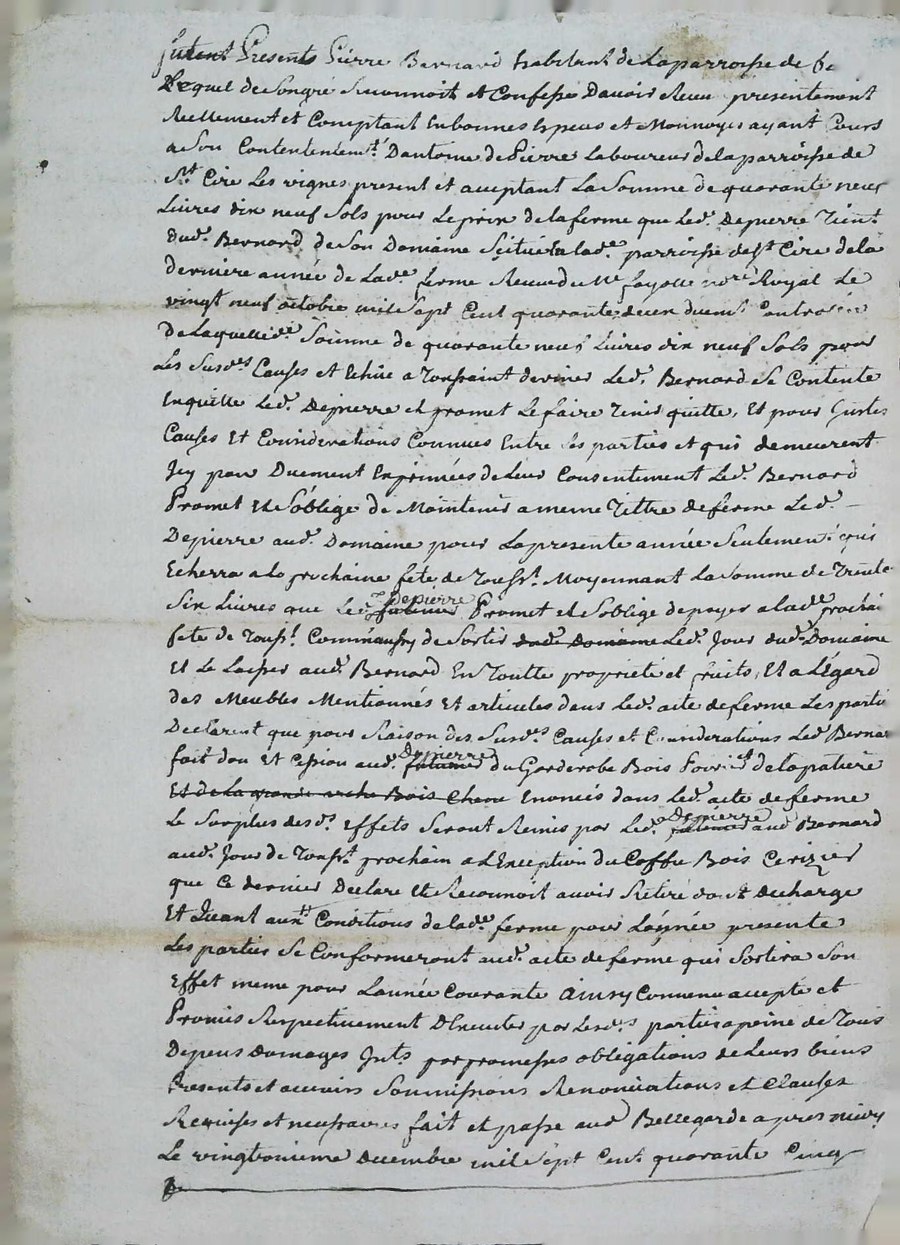 furent Presents Pierre Bernard habitant de Laparroisse de
Lequel de Songré Reconnoit et Confesse Davoir Receu presentement
Reellement et Comptant En bonnes Especes et Monnoyes ayant Cours
a Son Contentement Dantoine de Pierre Laboureur de la parroisse de
St. Cire Les vignes present et aceptant La Somme de quarante neuf
Livres dix neuf Sols pour Le prix de la ferme que Led. Depierre Tient
dud. Bernard de Son Domaine Scitué a lad.e parroisse de St. Cire de la
derniere année de Lad.e ferme Receue du Me fayolle no.re Royal Le
vingt neuf octobre mil Sept Cent quarante deux duem.t Controlée
De Laquelle d.e Somme de quarante neuf Livres dix neuf Sols pour
Les Susd.es Causes et Echüe a Toussaint dernier Led. Bernard Se Contente
Enquitte Led. Depierre et promet Le faire Tenir quitte, Et pour Justes
Causes Et Considerations Connues Entre Les parties et qui demeurent
Icy pour Duement Exprimées de Leur Consentement Led. Bernard
Promet Et Soblige de Maintenir a meme Tittre de ferme Led.
Depierre aud. Domaine pour La presente année Seulement qui
Echerra a La prochaine fete de Touss.t Moyennant La Somme de Trente
Six Livres que Led. Depierre Promet et Soblige de payer a lad.e prochai
fete de Touss.t Comm'aussy de Sortir dud. domaine Led. Jour dud. Domaine
Et Le Laisser aud. Bernard En Toutte proprieté et fruits, Et a Légard
des Meubles Mentionnés Et articulés dans Led. acte de ferme Les partie
Declarent que pour Raison des Susd.es Causes et Considerations Led. Bernar
fait don Et Cession aud. Depierre du Garderobe Bois et de la patiere
Et de La grande arche Bois Chene Enoncés dans Led. acte de ferme
Le Surplus desd.s Effets Seront Remis par Led. Depierre aud Bernard
aud. Jour de Touss.t prochain a L'Exception du Coffre Bois Cerizier
que Ce dernier Declare Et Reconnoit avoir Retiré dont Decharge
Et Quant aux Conditions de lad.e ferme pour L'année presente
Les parties Se Conformeront aud. acte de ferme qui Sortira Son
Effet meme pour L'année Courante Ainsy Convenu accepté et
Promis Respectivement D'Executer par Lesd.s parties a peine de Tous
Depens Domages Ints. par promesses obligations de Leurs biens
Presents et avenirs Soumissions Renonciations et Clauses
Requises et necessaires fait et passe aud Bellegarde apres midy
Le vingt onzieme Decembre mil Sept Cent quarante Cinq